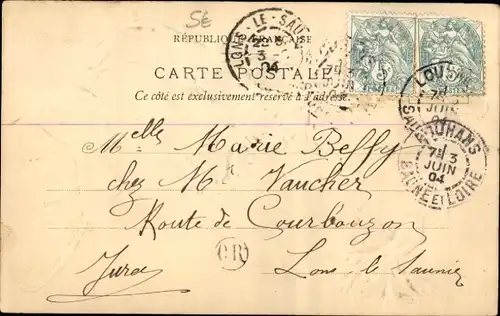 SE
RÉPUBLIQUE FRANÇAISE
CARTE POSTALE
Ce côté est exclusivement réservé à l'adresse.
LONS-LE-SAUNIER
3
04
LOUHANS
SAÔNE-ET-LOIRE
7E 3
JUIN
04
Melle Marie Beffy
chez M Vaucher
Route de Courbouzon
Jura
Lons le Saunier
OR